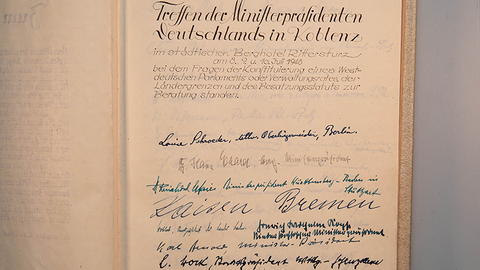 Treffen der Ministerpräsidenten
Deutschlands in Koblenz
im städtischen Berghotel Rittersturz
am 8., 9. u. 10. Juli 1948
bei dem Fragen der Konstituierung eines West-
deutschen Parlaments oder Verwaltungsrates, der
Ländergrenzen und des Besatzungsstatuts zur
Beratung standen.
Louise Schroeder, Oberbürgermeister, Berlin.
Hans Ehard
Reinhold Maier Ministerpräsident Württemberg-Baden in
Stuttgart
Kaisen Bremen
Ministerpräsident
Karl Arnold Minister-Präsident
L. Bock, Staatspräsident